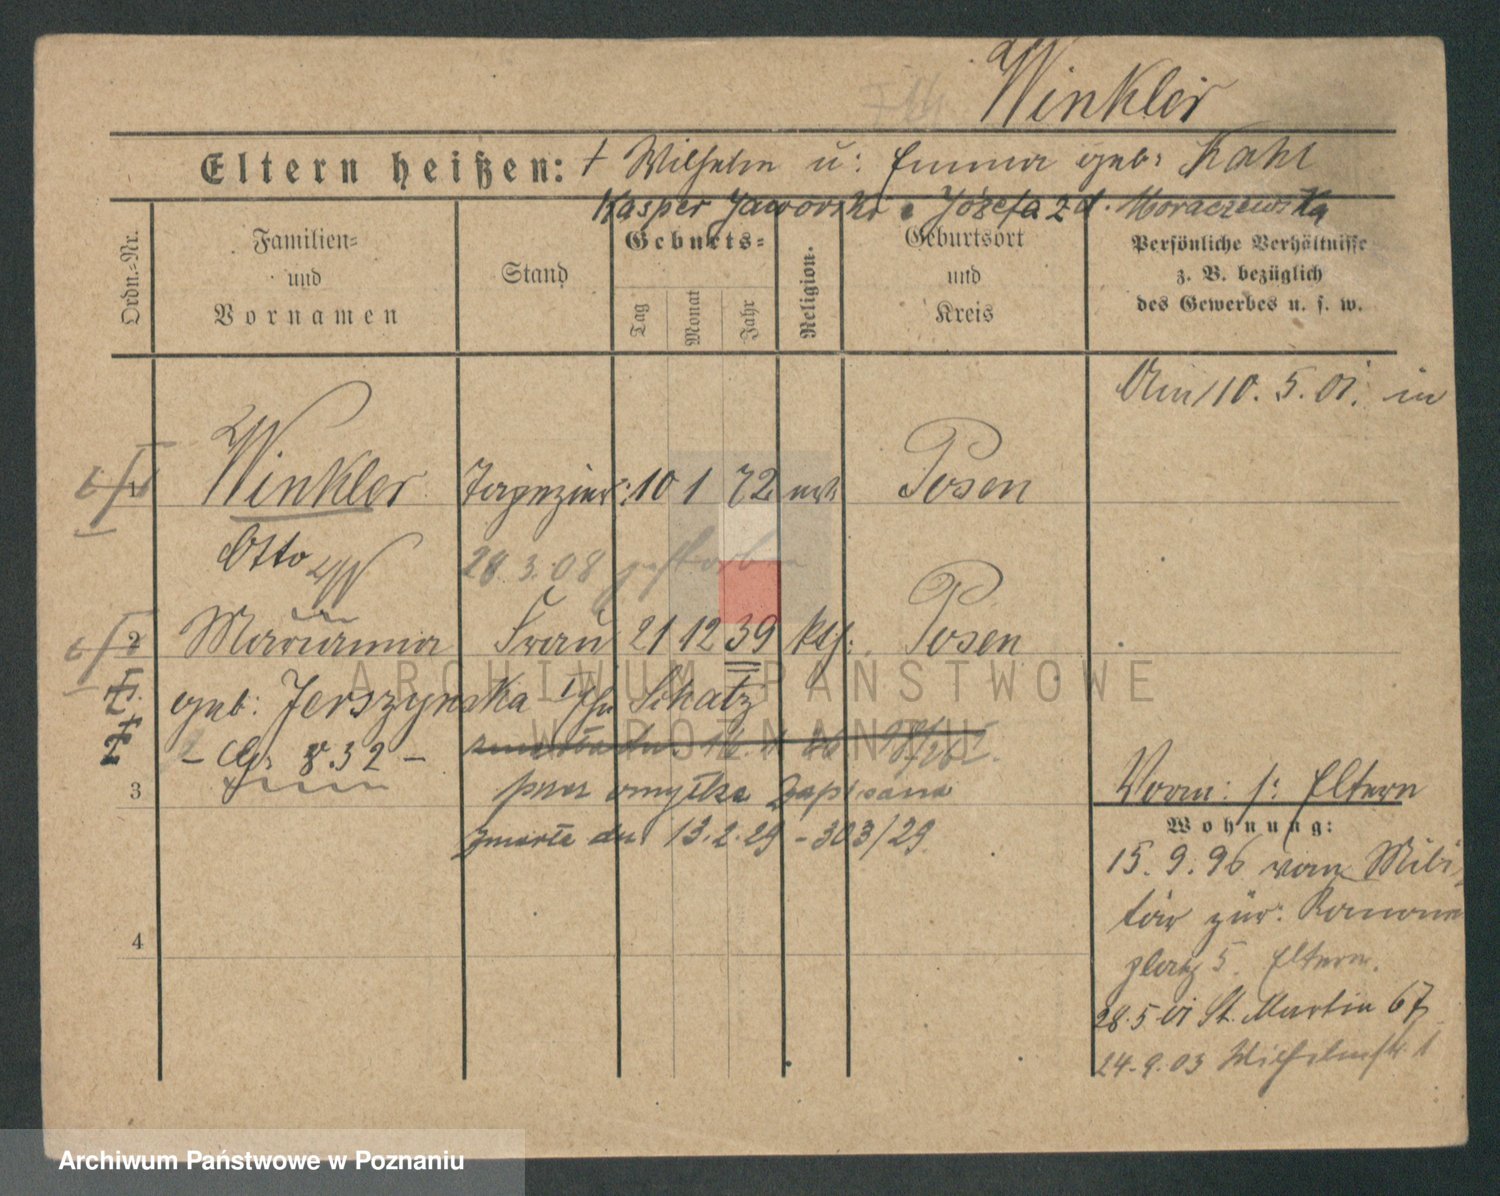 Winkler
Eltern heißen: † Wilhelm u: Emma geb: Kahl
Kasper Jaworski i Józefa z d. Moraczewska
Ordn.-Nr.
Familien-
und
Vornamen
Stand
Geburts-
Tag
Monat
Jahr
Religion.
Geburtsort
und
Kreis
Persönliche Verhältnisse
z. B. bezüglich
des Gewerbes u. s. w.
Am 10. 5. 01. in
1 Winkler Tapezier: 10 1 72 Posen
Otto 28 3. 08 gestorben
2 Marianna Frau 21 12 39 kth: Posen
geb: Jerszynska Schatz
8.32 -
przez omyłkę zapisana
3
zmarła dn. 13.2.29 - 303/29
4
Vorm: s: Eltern
Wohnung:
15. 9. 96 vom Mili-
tär zür:
platz 5. Eltern.
28.5 01 St. Martin 67
24.9.03 Wilhelmstr. 1
ARCHIWUM PAŃSTWOWE
W POZNANIU
Archiwum Państwowe w Poznaniu